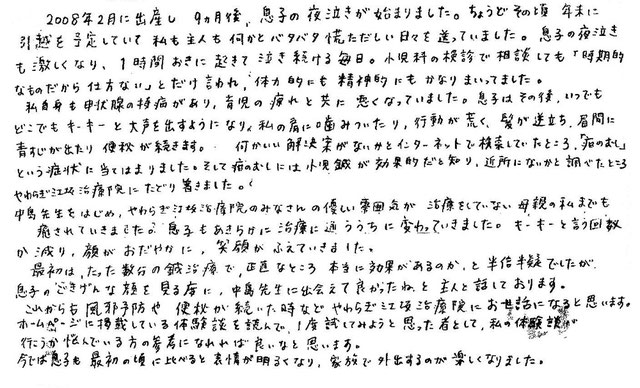 2008年2月に出産し 9ヵ月後、息子の夜泣きが始まりました。ちょうどその頃 年末に
引越を予定していて 私も主人も何かとバタバタ慌ただしい日々を送っていました。息子の夜泣き
も激しくなり、1時間おきに起きて泣き続ける毎日。小児科の検診で相談しても「時期的
なものだから仕方ない」とだけ言われ、体力的にも精神的にもかなりまいってました。
私自身も甲状腺の持病があり、育児の疲れと共に悪くなっていました。息子はその後、いつでも
どこでもキーキーと大声を出すようになり、私の肩に噛みついたり、行動が荒く、髪が逆立ち、眉間に
青すじが出たり 便秘が続きます。 何かいい解決策がないかとインターネットで検索していたところ、「疳のむし」
という症状に当てはまりました。そして疳のむしには小児鍼が効果的だと知り、近所にないかと調べたところ
やわらぎ江坂治療院にたどり着きました。
中島先生をはじめ、やわらぎ江坂治療院のみなさんの優しい雰囲気が 治療をしていない母親の私までも
癒されていきました。息子もあきらかに治療に通ううちに変わっていきました。キーキーと言う回数
が減り、顔がおだやかに、笑顔がふえていきました。
最初は、たった数分の鍼治療で、正直なところ 本当に効果があるのか、と半信半疑でしたが、
息子のごきげんな顔を見る度に、中島先生に出会えて良かったね、と主人と話しております。
これからも 風邪予防や 便秘が続いた時など やわらぎ江坂治療院にお世話になると思います。
ホームページに掲載している体験談を読んで、1度試してみようと思った者として、私の体験談が
行こうか悩んでいる方の参考になれれば良いなと思います。
今では息子も最初の頃に比べると表情が明るくなり、家族で外出するのが楽しくなりました。